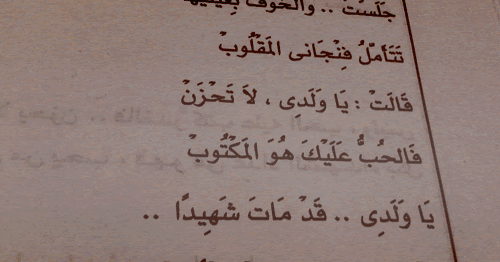 جَلَسَتْ .. وَالخَوْفُ بِعَيْنَيْهَا
تَتَأَمَّلُ فِنْجَانِى المَقْلُوبْ
قَالَتْ : يَا وَلَدِى ، لاَ تَحْزَنْ
فَالحُبُّ عَلَيْكَ هُوَ المَكْتُوبْ
يَا وَلَدِى .. قَدْ مَاتَ شَهِيدًا ..